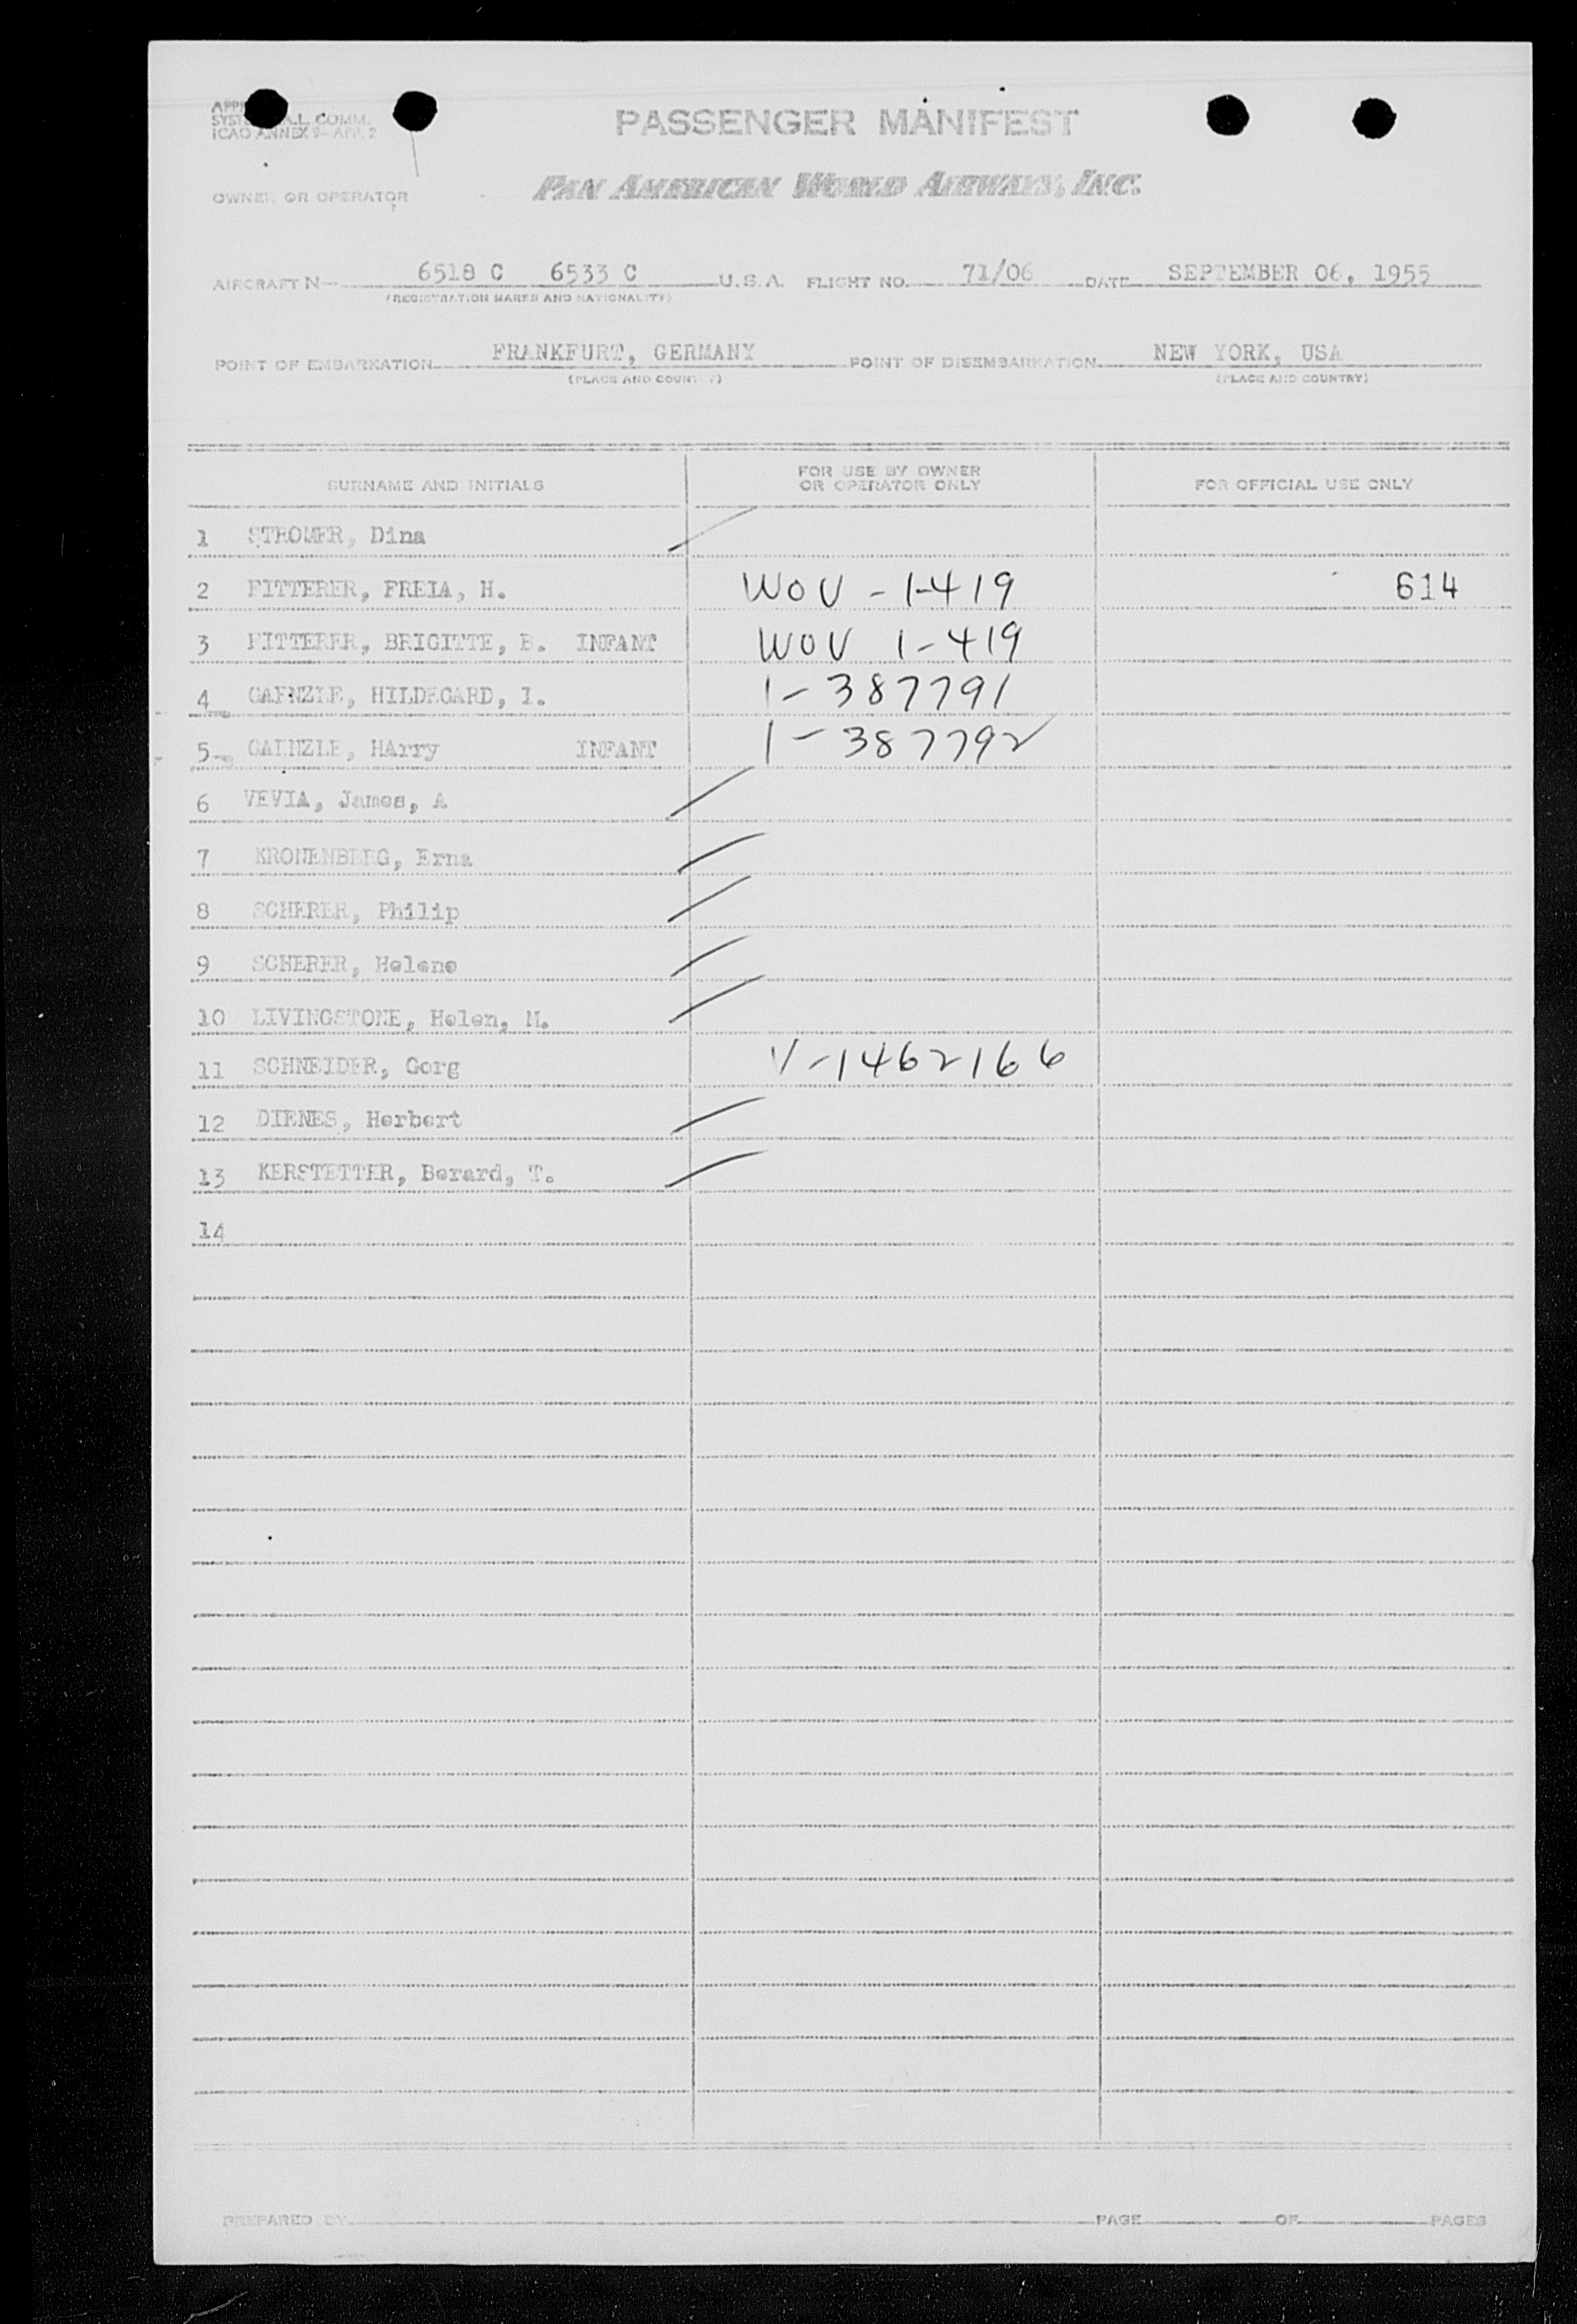 SYST A.L. COMM.
ICAO ANNEX 9- APP. 2
PASSENGER MANIFEST
OWNER OR OPERATOR
PAN AMERICAN WORLD AIRWAYS, INC.
AIRCRAFT N- 6518 C 6533 C U.S.A. FLIGHT NO. 71/06 DATE SEPTEMBER 06, 1955
(REGISTRATION MARKS AND NATIONALITY)
POINT OF EMBARKATION FRANKFURT, GERMANY POINT OF DISEMBARKATION NEW YORK, USA
(PLACE AND COUNTRY) (PLACE AND COUNTRY)
SURNAME AND INITIALS FOR USE BY OWNER OR OPERATOR ONLY FOR OFFICIAL USE ONLY
1 STROMER, Dina
2 FITTERER, FREIA, H. WOV - 1-419 614
3 FITTERER, BRIGITTE, B. INFANT WOV 1-419
4 GAENZLE, HILDEGARD, I. 1-387791
5 GAENZLE, HArry INFANT 1-387792
6 VEVIA, James, A
7 KRONENBERG, Erna
8 SCHERER, Philip
9 SCHERER, Helene
10 LIVINGSTONE, Helen, M.
11 SCHNEIDER, Gorg V-1462166
12 DIENES, Herbert
13 KERSTETTER, Berard, T.
14
PREPARED BY PAGE OF PAGES